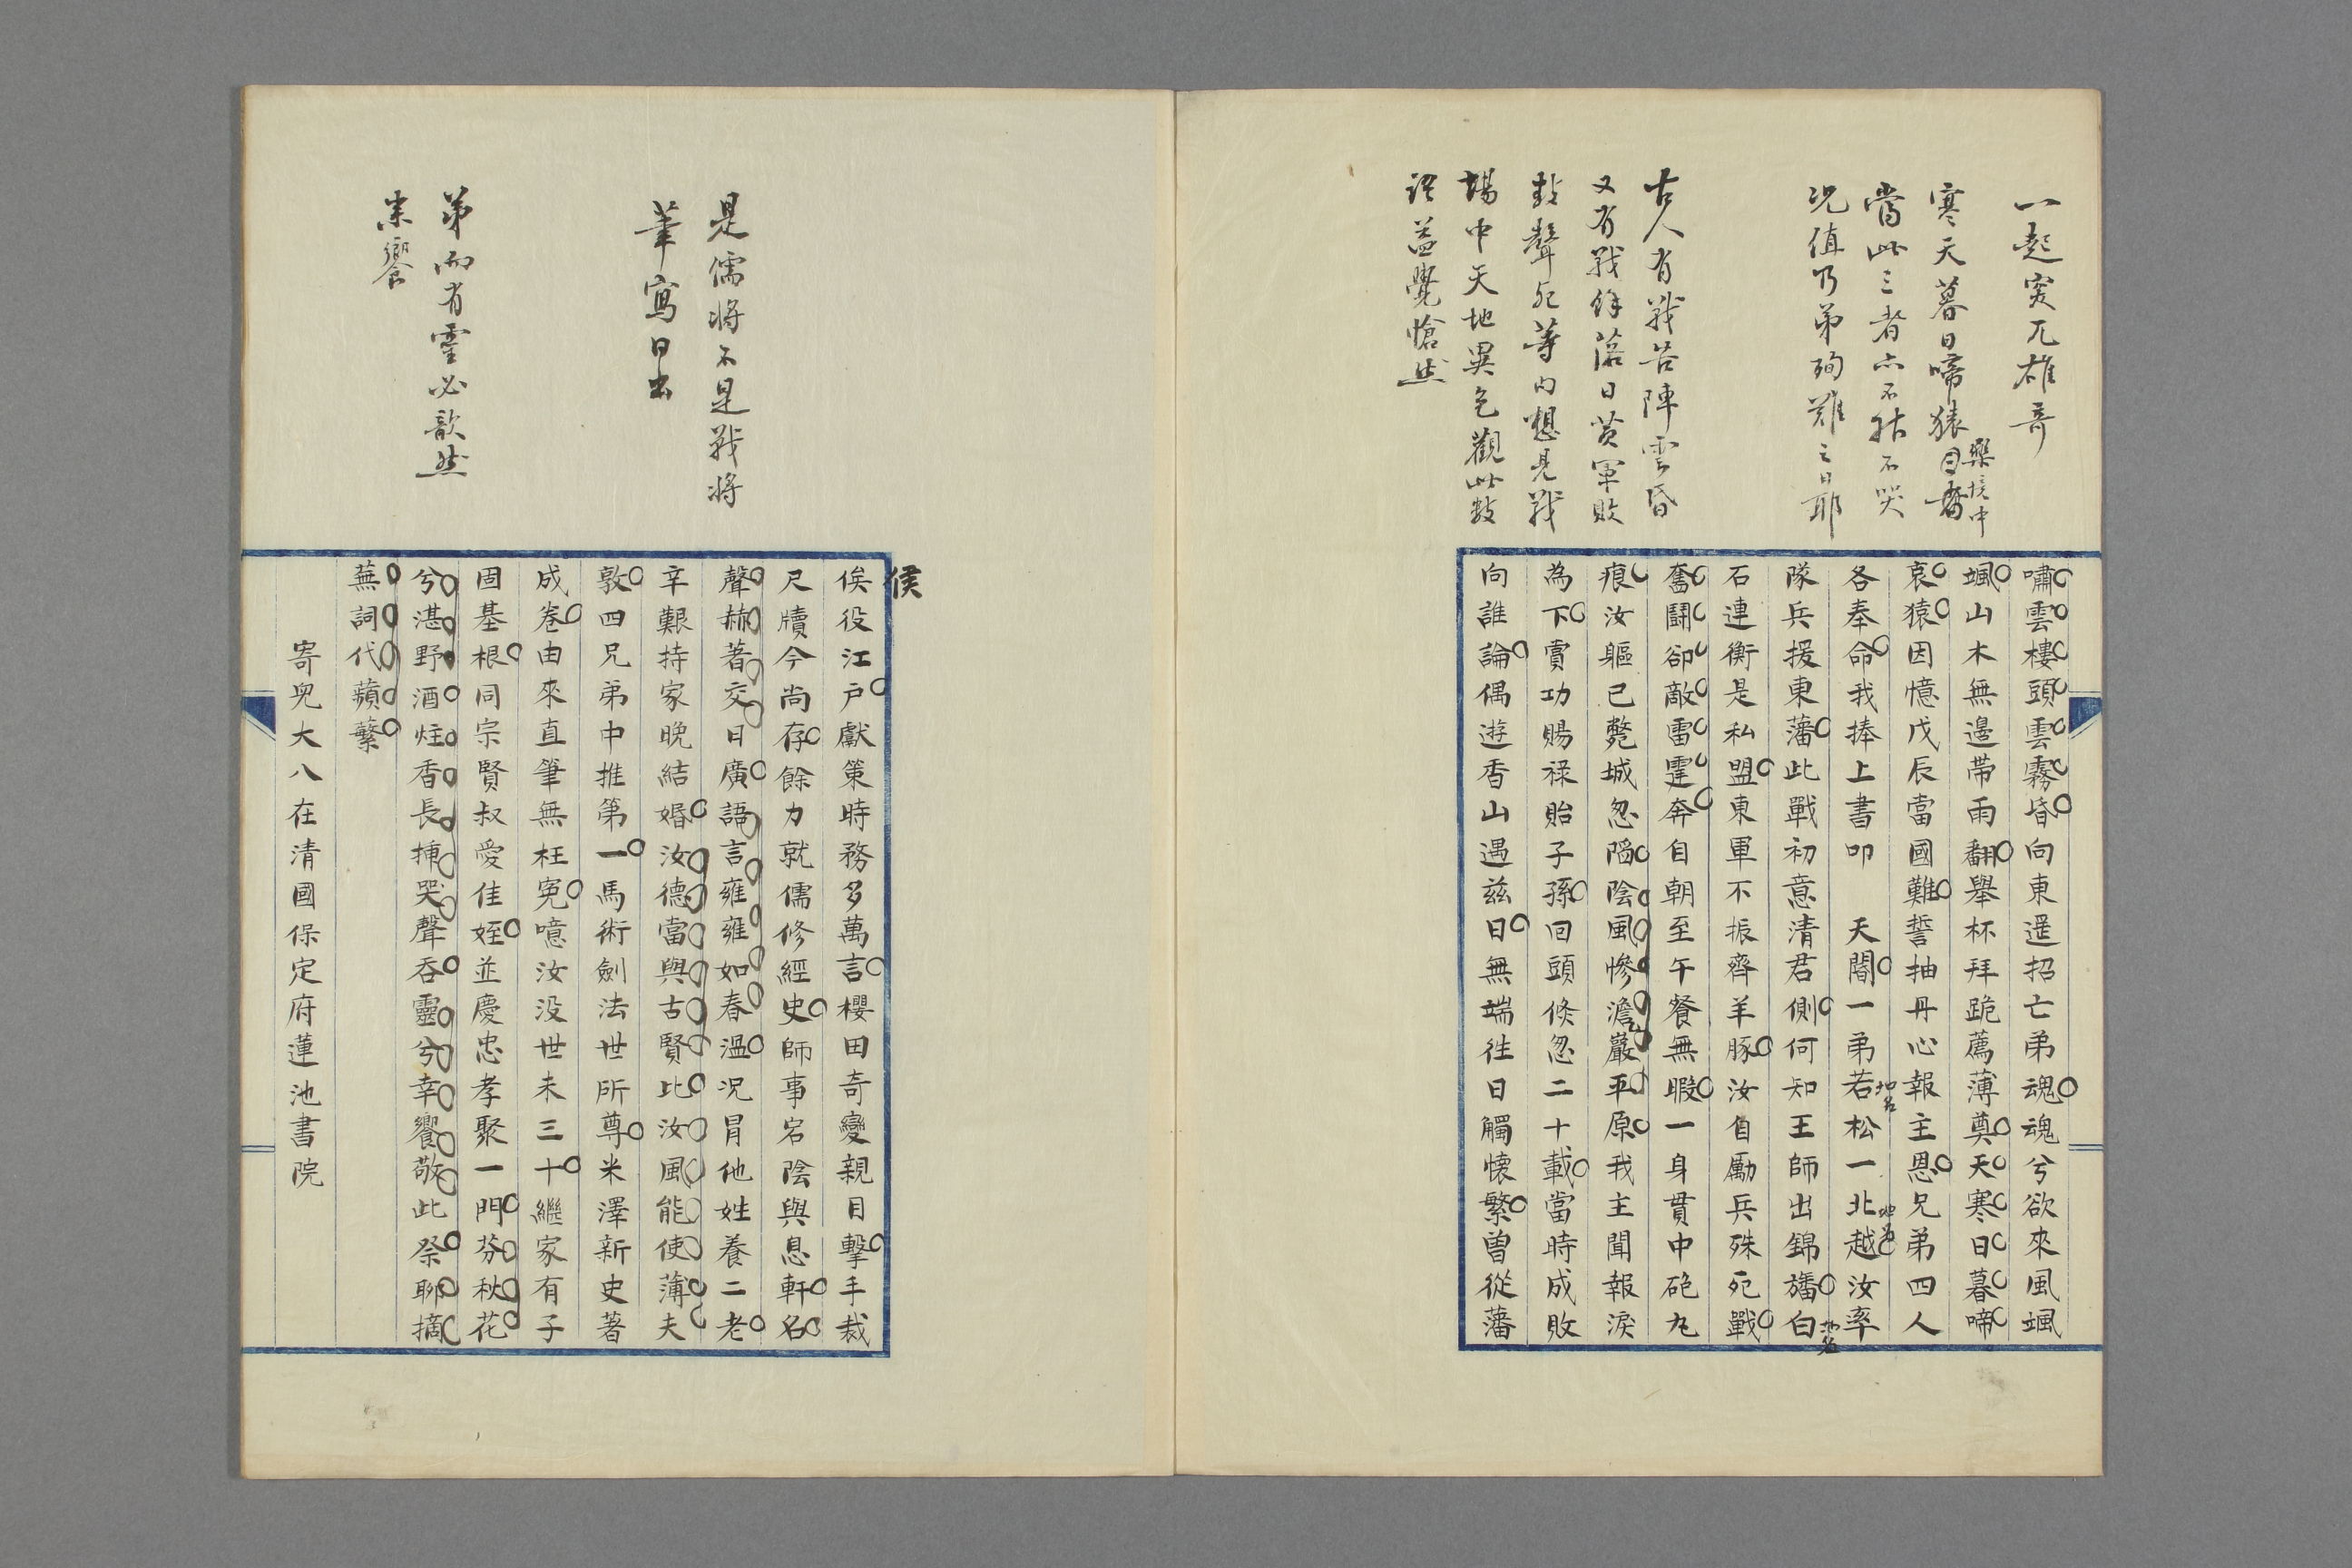 一起突兀雄奇
寒天暮日啼猿目
樂境中
當此三者亦不能不哭
况值乃弟殉難之日耶
古人有戰苦陣雲昏
又有戰餘落日黄軍敗
鼓聲死等内想見戰
場中天地異色觀此數
語益覺愴然
嘯雲樓頭雲霧昏向東遥招亡弟魂魂兮欲來風颯
颯山木無邊帶雨翻舉杯拜跪薦薄奠天寒日暮啼
哀猿因憶戊辰當國難誓抽丹心報主恩兄弟四人
各奉命我捧上書叩　天閽一弟若松一北越汝率
地名
地名
隊兵援東藩此戰初意清君側何知王師出錦旛白
地名
石連衡是私盟東軍不振齊羊豚汝自勵兵殊死戰
奮鬪卻敵雷霆奔自朝至午餐無暇一身貫中砲丸
痕汝軀已斃城忽陷陰風慘澹巖平原我主聞報淚
為下賣功賜祿貽子孫回頭倏忽二十載當時成敗
向誰論偶遊香山遇兹日無端往日觸懷繁曾從藩
是儒將不是戰將
筆寫
弟而有靈必歆然
來饗
侯
俟役江户獻策時務多萬言櫻田奇變親目擊手裁
尺牘今尚存餘力就儒修經史師事宕陰與息軒名
聲赫著交日廣語言雍雍如春温况冒他姓養二老
辛艱持家晚結婚汝德當與古賢比汝風能使薄夫
敦四兄弟中推第一馬術劍法世所尊米澤新史著
成卷由來直筆無枉冤噫汝没世未三十繼家有子
固基根同宗賢叔愛佳姪並慶忠孝聚一門芬秋花
兮湛野酒炷香長揷哭聲吞靈兮幸饗敬此祭聊摘
蕪詞代蘋蘩
寄兒大八在清國保定府蓮池書院